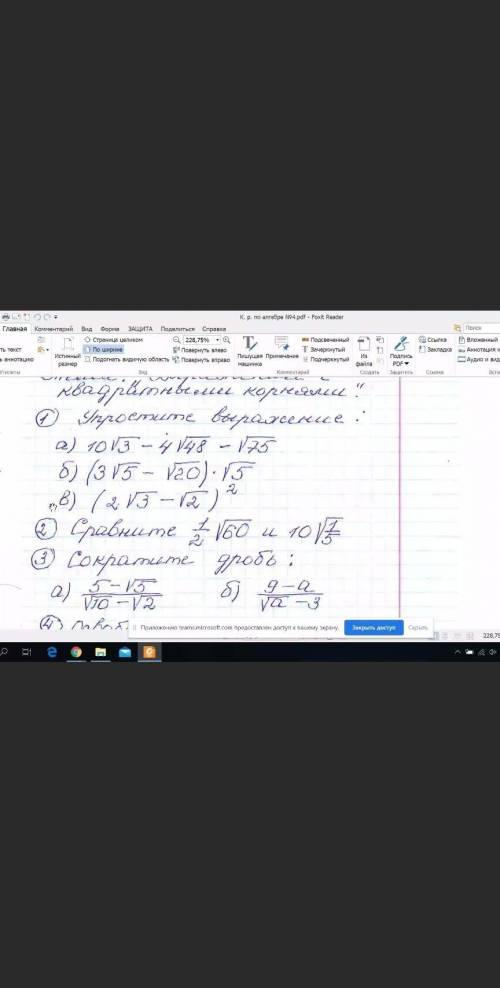 К. р. по алгебре №4.pdf - Foxit Reader
Главная Комментарий Вид Форма ЗАЩИТА Поделиться Справка
Поиск
ть текст
ь аннотацию
Истинный размер
Страница целиком
По ширине
Подогнать видимую область
228,75%
Повернуть влево
Повернуть вправо
Пишущая машинка
Примечание
Подсвеченный
Зачеркнутый
Подчеркнутый
Из файла
Подпись PDF
Ссылка
Закладка
Вложенный
Аннотация
Аудио и вид
Вид Комментарий Создать Защитить Ссылка
квадратными корнями".
① Упростите выражение:
а) 10√3 − 4√48 − √75
б) (3√5 − √20)·√5
в) (2√3 − √2)²
② Сравните 1/2 √60 и 10√(1/5)
③ Сократите дробь:
а) (5−√5)/(√10−√2) б) (9−a)/(√a−3)
④
Приложению teams.microsoft.com предоставлен доступ к вашему экрану.
Закрыть доступ
Скрыть
228,75